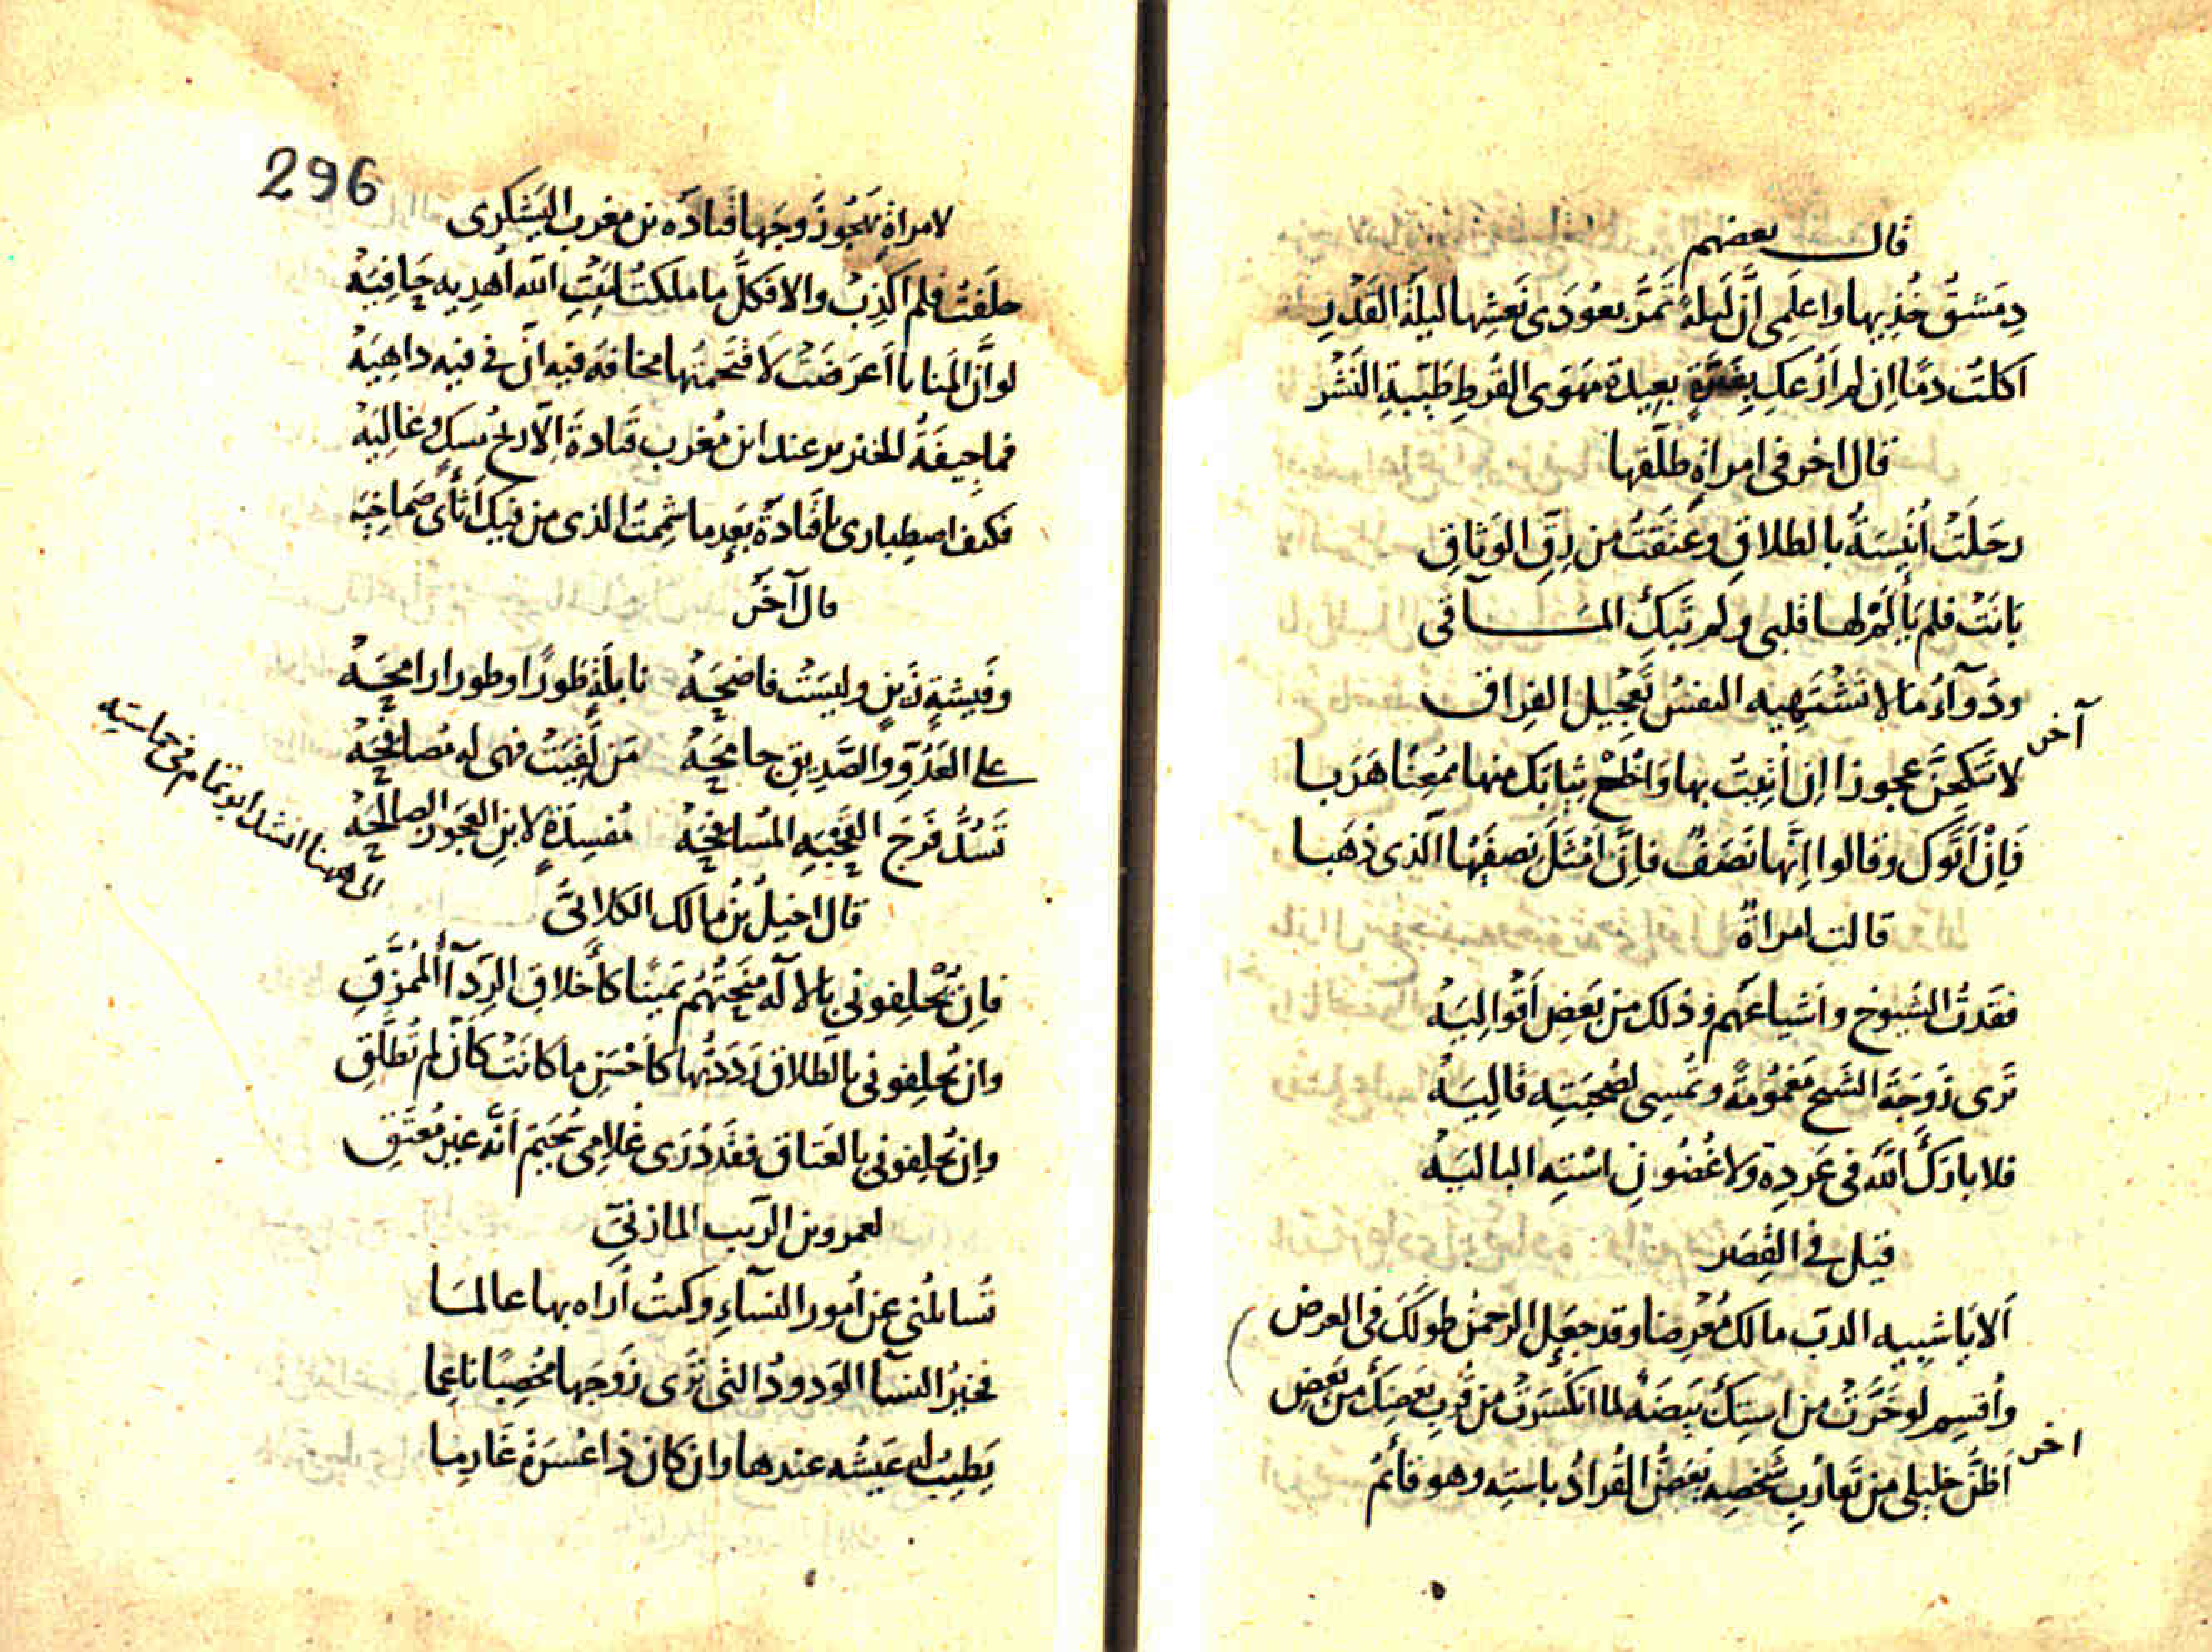 قال بعضهم
دِمَشقُ خُذِيها واعلَمِى أنَّ لَيلةً تَمُرُّ بعُودَى نَعشِها ليلَةُ القَدْرِ
اكلتُ دمًا اِن لم اَرُعكِ بِضَرّةٍ بعيدة مَهوَى القُرطِ طَيّبةِ النَشْر
قال اخر فى امراةٍ طلّقها
رحَلَتْ اُنَيسَةُ بالطلاقِ وعَتَقتُ من رِقِّ الوَثاقِ
بَانَتْ فلم يَألَمْ لها قلبى ولم تَبكِ المَآقى
ودَوآءُ مَا لا تَشْتَهِيه النفسُ تَعجيل الفِراق
آخر
لا تنكِحَنَّ عجوزا اِن اُتِيتَ بها وَاخلَعْ ثِيابَك منها مُمْعِنًا هَرَبا
فَاِنْ أَتَوكَ وقالوا اِنّها نَصَفٌ فاِنَّ اَمْثَلَ نِصفَيْها الّذى ذهَبا
قالت امراةٌ
فقَدتُ الشيُوخ واَشياعَهم وذلك من بَعضِ اَقْوالِيَهْ
تَرى زَوجَةَ الشَيخ مَغمُومَةً وتُمسِى لصُحبَتِه قالِيَهْ
فلا بارَكَ اللّه فى عَردِه وَلا غُضُونِ اسْتِه البالِيَهْ
قيل فى القِصَر
اَلا يا شبيه الدبّ مالك مُعْرِضا وقد جعَل الرحمنُ طولَكَ فى العرض
واُقسِم لو خَرَّتْ من استِكَ بَيضَةٌ لما انكَسَرَتْ من قُربِ بَعضِكَ من بَعضِ
اخر
اَظُنُّ خليلى من تَقارُبِ شَخصِه يَعَضُّ القُرادُ باستِه وهو قائمُ
296
لامراةٍ تَهجُو زَوجَها قتادَه بن مغرب اليَشكرى
حلَفتُ فلم اَكذِبْ والا فكلُّ ما ملكتُ لبَيْتِ اللّه اُهدِيه حَافِيَهْ
لو اَنّ المَنايا اَعرَضَتْ لَاقتَحمتُها مخافَةَ فيه انّ فى فيه داهِيَهْ
فما جِيفَةُ الخنزير عند ابن مُغرب قَتادةَ اِلّا ريحُ مسك وغالِيَهْ
فكيف اصطِبارى يا قَتادَةُ بَعدِ ما شَمِمتُ الذى من فيك اَثأَى صَماخِيَهْ
قال آخَرُ
وفَيشةٍ زَينٍ وليسَتْ فاضِحَهْ نابلَةٍ طَورًا وطورا رامحَهْ
على العَدُوِّ والصَّدِيقِ جامحَهْ مَن لَقِيَتْ فهى له مُصافِحَهْ
تَسُدُّ فَرجَ القَحْبَةِ المُسافِحَهْ مُفسِدَةٍ لابنِ العَجوزِ الصالِحَهْ
الى ههنا انشد ابو تمام فى حماسته
قال اخيلُ بنُ مالك الكلابىّ
فاِن تُحْلِفونى بالاِلآه مَنَحْتُهُم يَمينًا كأَخلاقِ الرِدآءِ المُمزَّقِ
وان تُحلِفونى بالطلاق رَدَدتُها كأَحْسَنِ ما كانَتْ كاَن لم تُطلَّقِ
واِن تُحلِفونى بالعَتاق فقَد دَرَى غُلامِى سُحَيمٌ اَنّه غيرُ مُعتَقِ
لعمرو بن الرَيب المازنىّ
تُسائلُنى عن اُمور النسآءِ وكنتُ اُراه بها عالمَا
فخيرُ النسآء الوَدودُ التى تَرَى زَوجَها مُخصِبًا ناعِما
يَطِيبُ له عَيشُه عندها وان كان ذا عُسْرَةٍ غَارِما